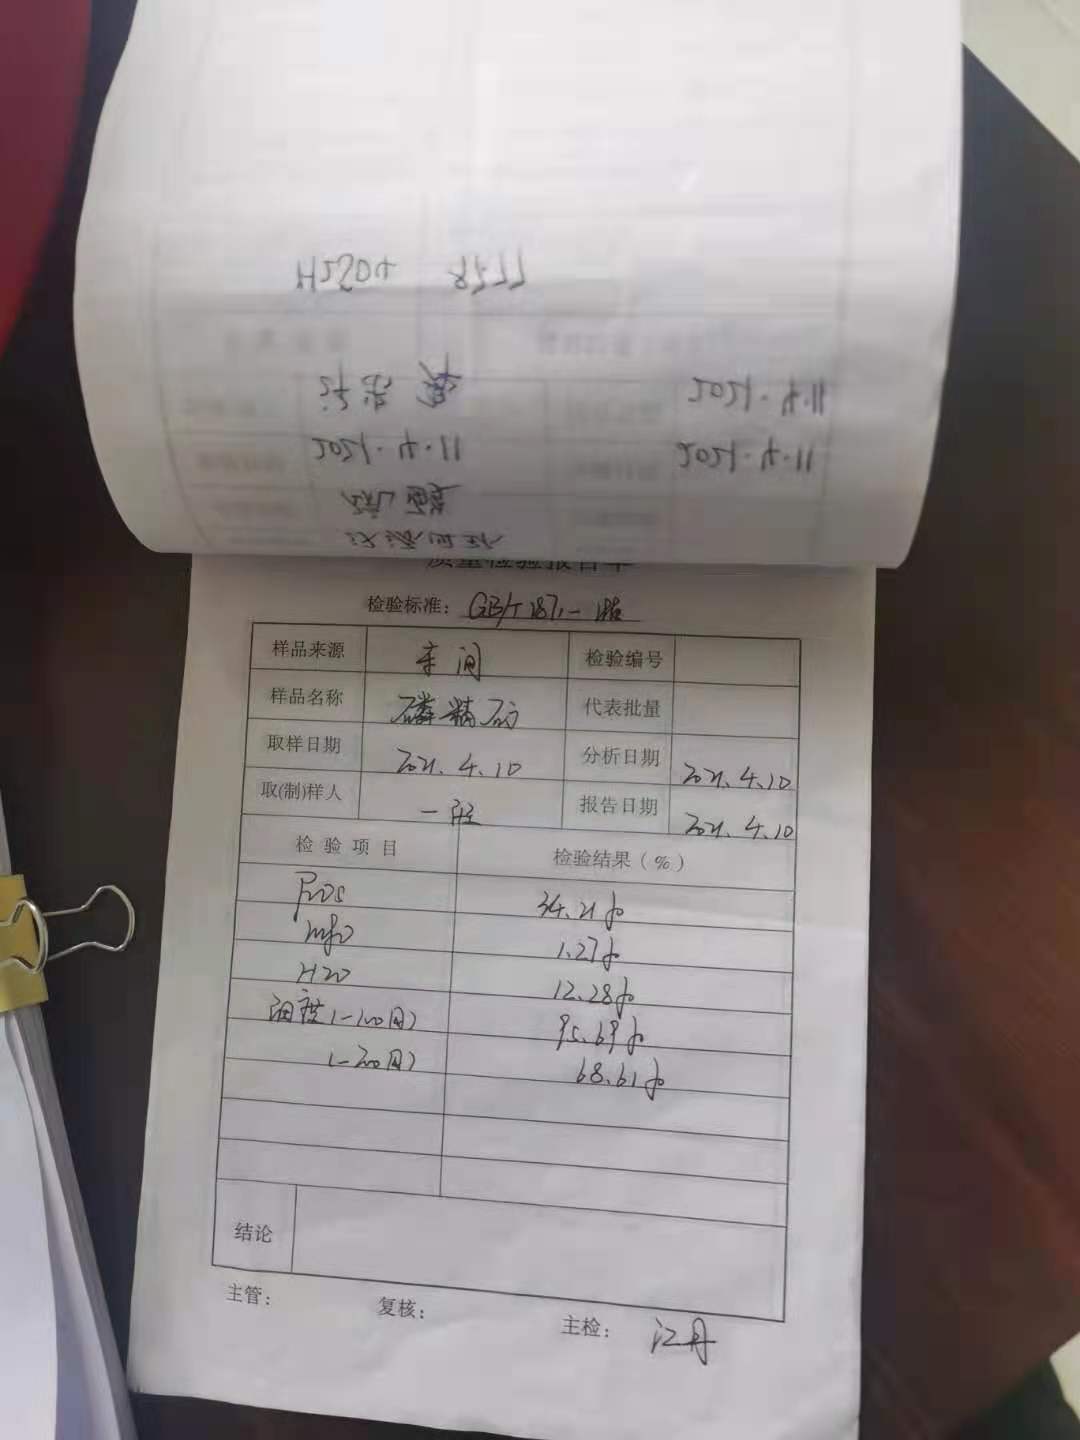 H2SO4
2021.4.11
2021.4.11 2021.4.11
硫酸
质量检验报告单
检验标准: GB/T 1871-
样品来源 车间 检验编号
样品名称 磷精矿 代表批量
取样日期 2021.4.10 分析日期 2021.4.10
取(制)样人 一班 报告日期 2021.4.10
检验项目 检验结果(%)
P2O5 34.21%
MgO 1.27%
H2O 12.28%
细度(-100目) 95.69%
(-200目) 68.61%
结论
主管: 复核: 主检: 江丹